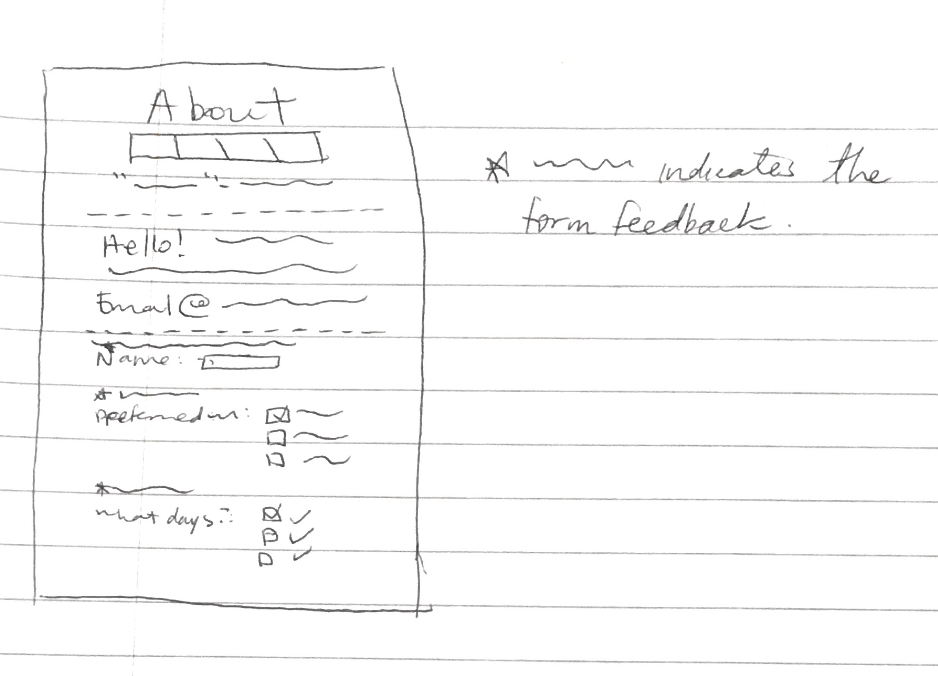 About
Hello!
Email@
Name:
what days?:
* indicates the
form feedback.